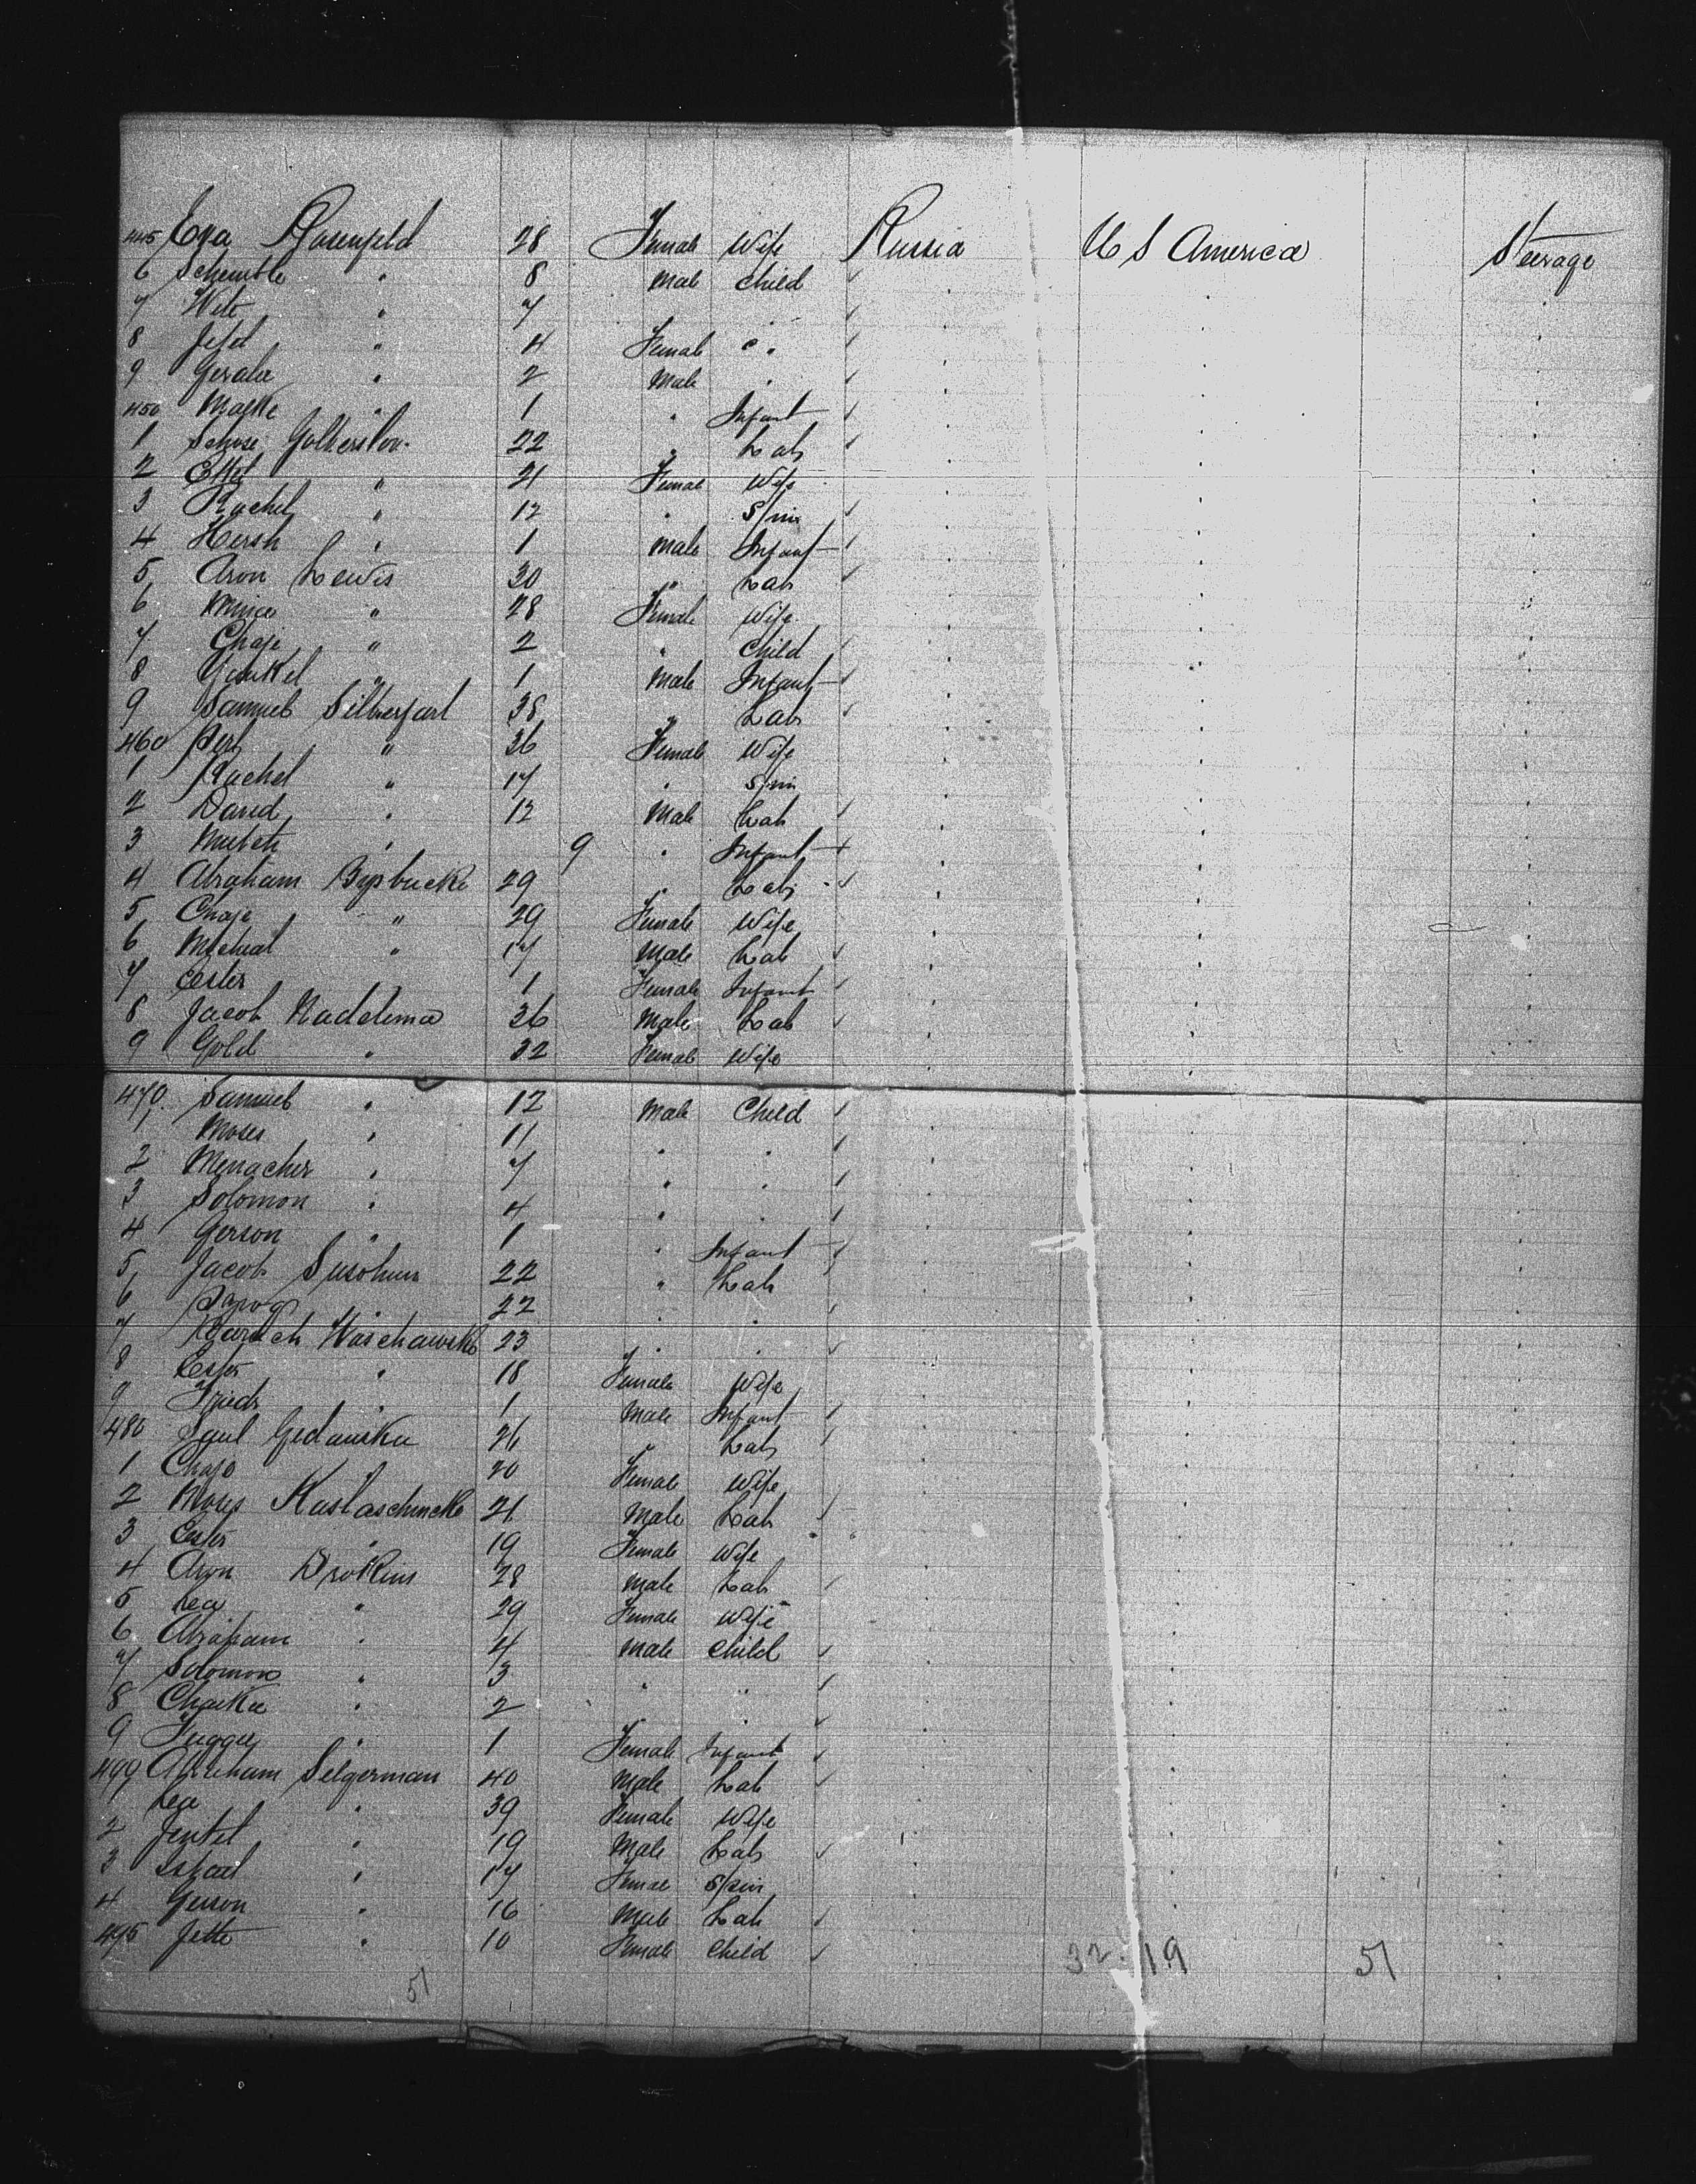 445 Eva Rosenfeld 28 Female Wife Russia U S America Steerage
6 Schemble " 8 Male Child
7 Wite " 7 " "
8 " 4 Female " "
9 " 2 Male "
450 " 1 " Infant
1 22 " Lab
2 Ettel " 21 Female Wife
3 Rachel " 12 " Spin
4 Hersh " 1 Male Infant
5 Aron Lewis 30 " Lab
6 Mince " 28 Female Wife
7 Chaje " 2 " Child
8 Yankel " 1 Male Infant
9 Samuel Silberfarl 38 " Lab
460 Perl " 36 Female Wife
1 Rachel " 17 " Spin
2 David " 12 Male Lab
3 " 9 " Infant
4 Abraham 29 " Lab
5 Chaje " 29 Female Wife
6 Michual " 17 Male Lab
7 Cester 1 Female Infant
8 Jacob Nadelima 36 Male Lab
9 Gold " 32 Female Wife
470 Samuel " 12 Male Child
1 Moses " 11 " "
2 Menacher " 7 " "
3 Solomon " 4 " "
4 Gerson " 1 " Infant
5 Jacob 22 " Lab
6 " 22 " "
7 Warschawski 23 " "
8 Cester " 18 Female Wife
9 " 1 Male Infant
480 Saul Gedanskie 26 " Lab
1 Chaje " 20 Female Wife
2 Moses Kaslaschincke 21 Male Lab
3 Cester " 19 Female Wife
4 Aron Drokins 28 Male Lab
5 Lea " 29 Female Wife
6 Abraham " 4 Male Child
7 Solomon " 3 " "
8 Chaika " 2 " "
9 " 1 Female Infant
490 Abraham Selgerman 40 Male Lab
1 Lea " 39 Female Wife
2 Jentel " 19 Male Lab
3 " 17 Female Spin
4 Gerson " 16 Male Lab
495 Jette " 10 Female Child
51 32 19 51